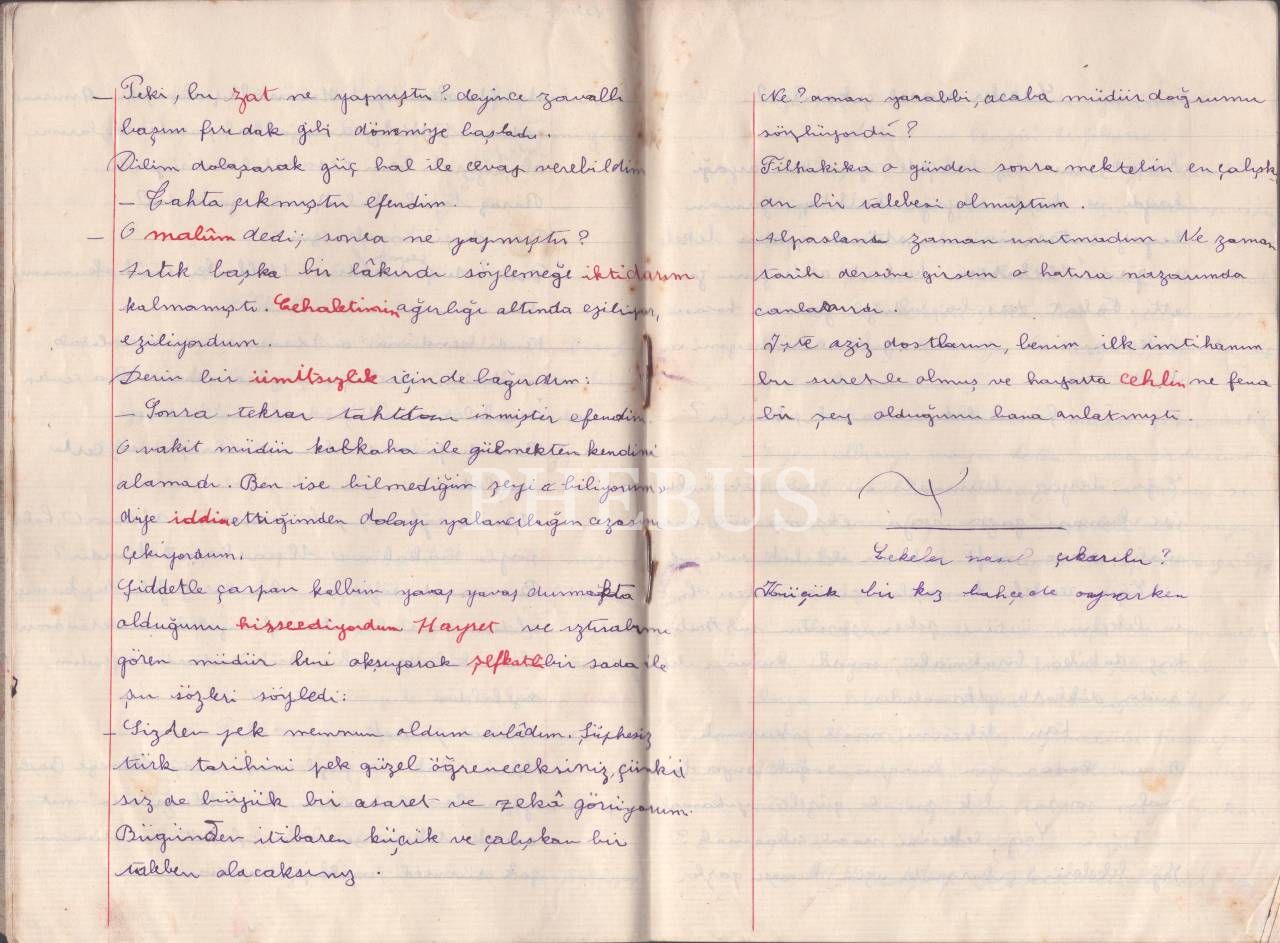 — Peki, bu zat ne yapmıştır? deyince zavallı
başım fırıdak gibi dönmiye başladı.
Dilim dolaşarak güç hal ile cevap verebildim
— Tahta çıkmıştır efendim.
— O malûm dedi; sonra ne yapmıştır?
Artık başka bir lâkırdı söylemeğe iktidarım
kalmamıştı. Cehaletimin ağırlığı altında eziliyor,
eziliyordum.
Derin bir ümitsizlik içinde bağırdım:
— Sonra tekrar tahttan inmiştir efendim
O vakit müdür kahkaha ile gülmekten kendini
alamadı. Ben ise bilmediğim şeyi biliyorum
diye iddia ettiğimden dolayı yalancılığın cezasını
çekiyordum.
Şiddetle çarpan kalbim yavaş yavaş durmakta
olduğunu hisseediyordum Hayret ve ıztırabımı
gören müdür beni okşıyarak şefkatli bir sada ile
şu sözleri söyledi:
— Sizden pek memnun oldum evlâdım. Şüphesiz
türk tarihini pek güzel öğreneceksiniz, çünkü
siz de büyük bir asaret ve zekâ görüyorum.
Bügünden itibaren küçük ve çalışkan bir
talebem olacaksınız.
Ne? aman yarabbi, acaba müdür doğrumu
söylüyordu?
Filhakika o günden sonra mektebin en çalışk-
an bir talebesi olmuştum.
Alpaslanı zaman unutmadım Ne zaman
tarih dersine girsem o hatıra nazarımda
canlanırdı.
İşte aziz dostlarım, benim ilk imtihanım
bu suretle olmuş ve hayatta cehlin ne fena
bir şey olduğunu bana anlatmıştı.
PHEBUS
Lekeler nasıl çıkarılır?
Küçük bir kız bahçede oynarken